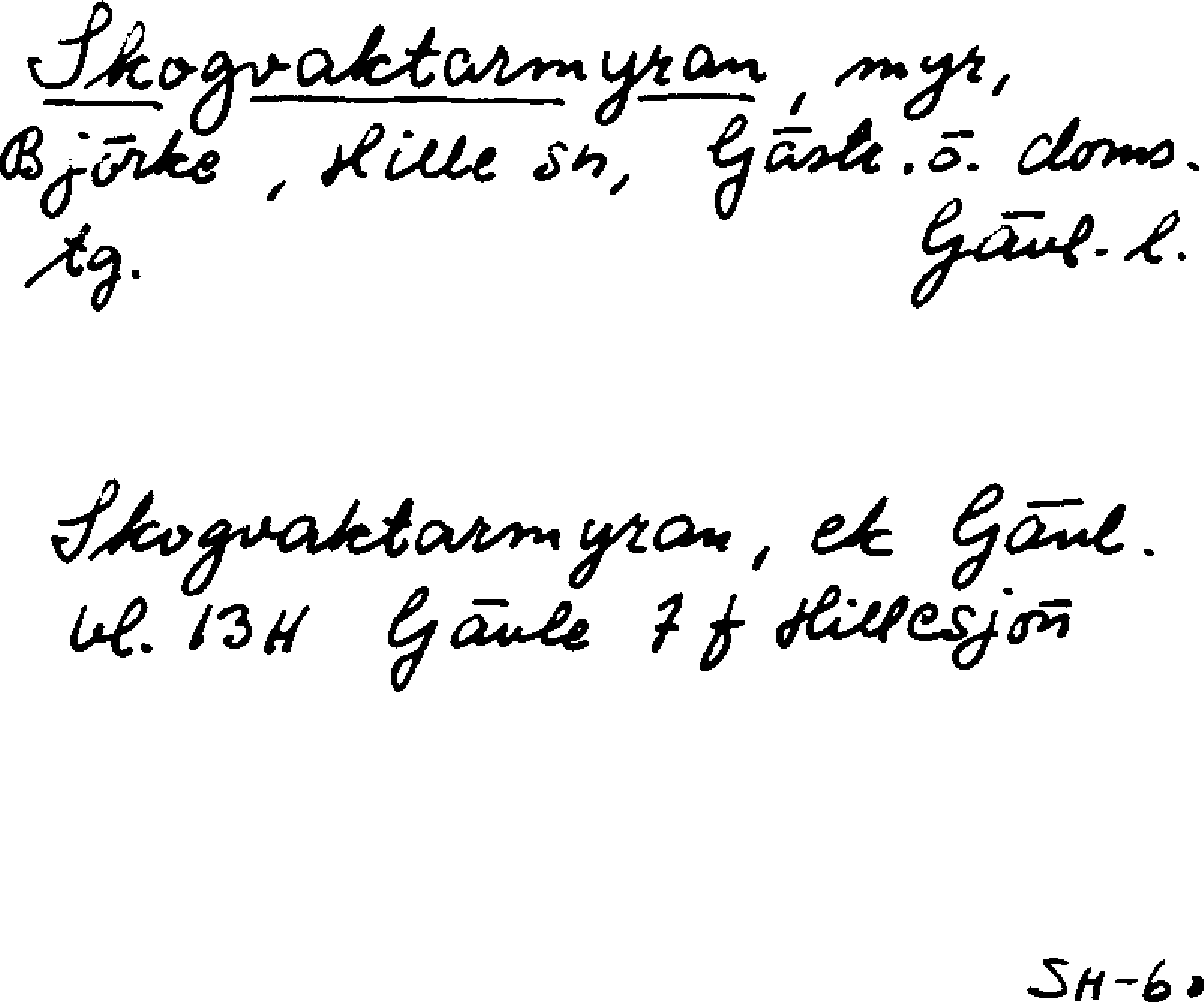 Skogvaktarmyran, myr,
Björke, Hille sn, Gästr. ö. doms.
tg. Gävl. l.
Skogvaktarmyran, ek Gävl.
bl. 13H Gävle 7 f Hillesjön